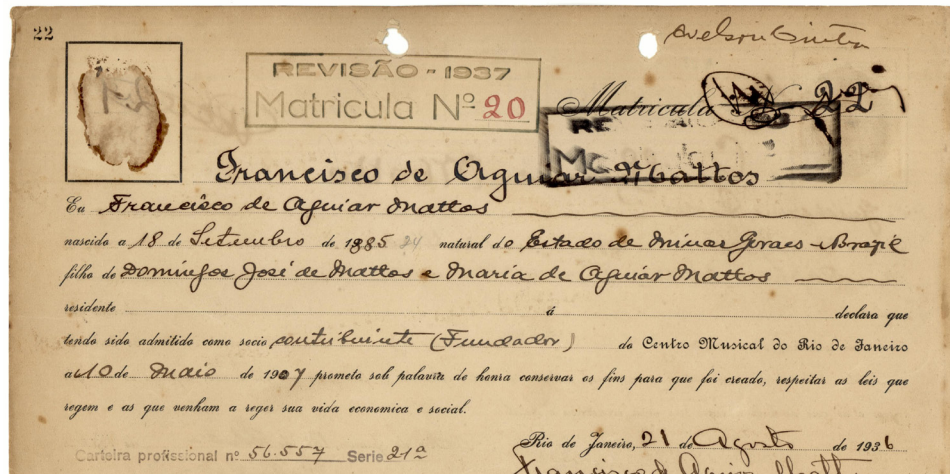 22
Nelson Cintra
REVISÃO - 1937
Matricula Nº 20
Matricula Nº 22
Francisco de Aguiar Mattos
Eu Francisco de Aguiar Mattos
nascido a 18 de Setembro de 1885 24 natural do Estado de Minas Geraes - Brazil
filho de Domingos José de Mattos e Maria de Aguiar Mattos
residente á declara que
tendo sido admitido como socio contribuinte (Fundador) do Centro Musical do Rio de Janeiro
a 10 de Maio de 1907 prometo sob palavra de honra conservar os fins para que foi creado, respeitar as leis que
regem e as que venham a reger sua vida economica e social.
Rio de Janeiro, 21 de Agosto de 1936
Carteira profissional nº 56.557 Serie 21ª
Francisco de Aguiar Mattos